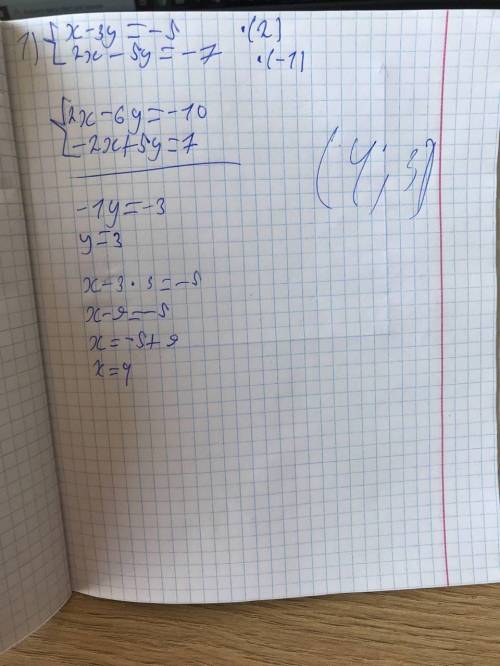 1) { x-3y=-5 ·(2)
2x-5y=-7 ·(-1)
{ 2x-6y=-10
-2x+5y=7
-1y=-3
y=3
x-3·3=-5
x-9=-5
x=-5+9
x=4
(4;3)